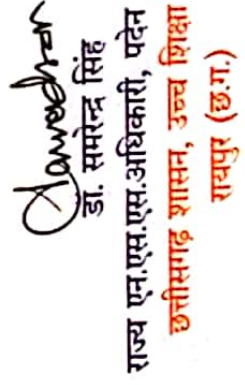 डॉ. समरेन्द्र सिंह
राज्य एन.एस.एस.अधिकारी, पदेन
छत्तीसगढ़ शासन, उच्च शिक्षा
रायपुर (छ.ग.)